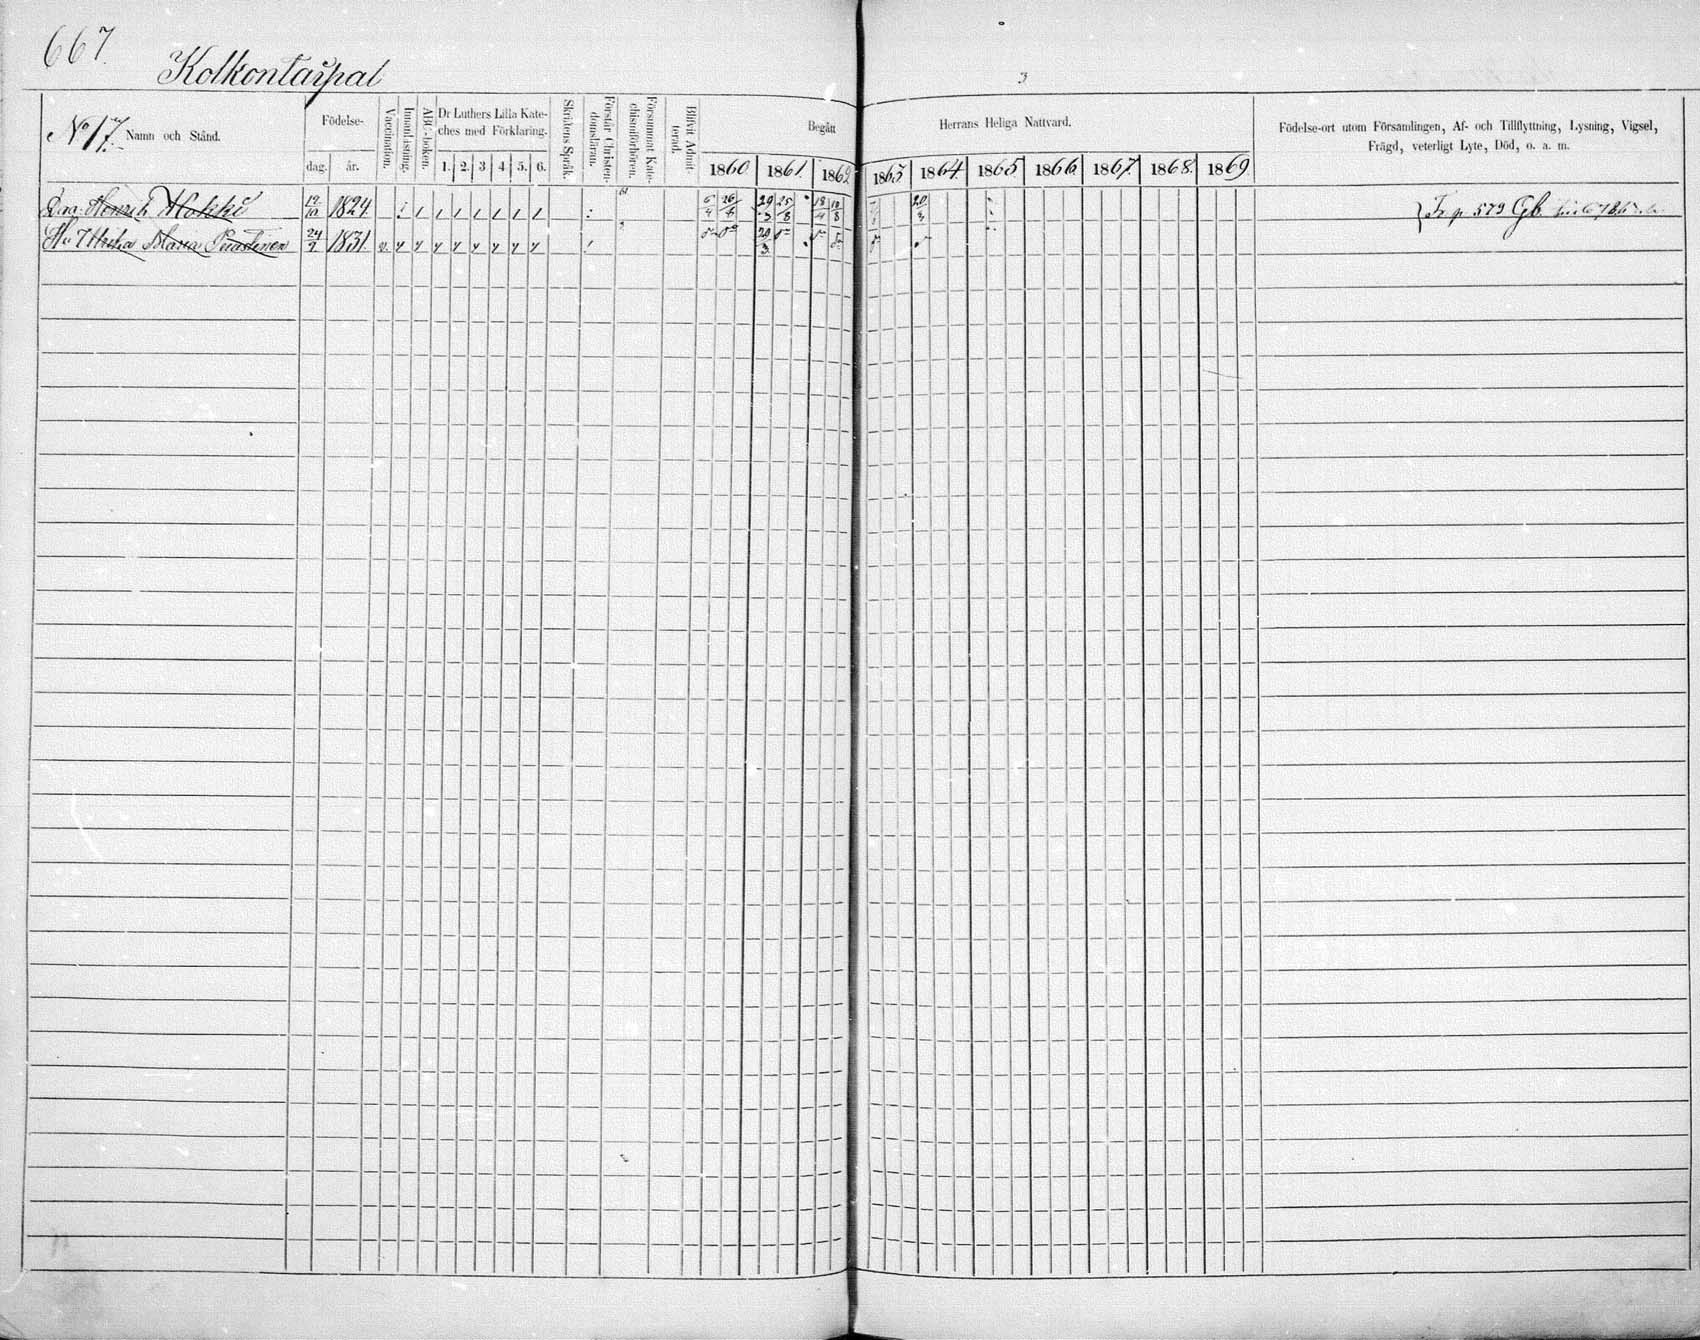 667.
Kolkontaipal
No 17. Namn och Stånd.
Födelse-
dag. år.
Vaccination.
Innanläsning.
ABC-boken.
Dr Luthers Lilla Kate-
ches med Förklaring.
1. 2. 3 4. 5. 6.
Skriftens Språk.
Förstår Christen-
domsläran.
Försummat Kate-
chismiförhören.
Blifvit Admit-
terad.
Begått
1860 1861. 1862
3
Herrans Heliga Nattvard.
1863 1864 1865 1866 1867. 1868. 1869
Födelse-ort utom Församlingen, Af- och Tillflyttning, Lysning, Vigsel,
Frägd, veterligt Lyte, Död, o. a. m.
Henrik Hokki 19/10 1824 5/4 26/8 29/3 25/8 18/4 10/8 20/3 p. 579 Gb
Maria Puustinen 24/2 1831. 29/3